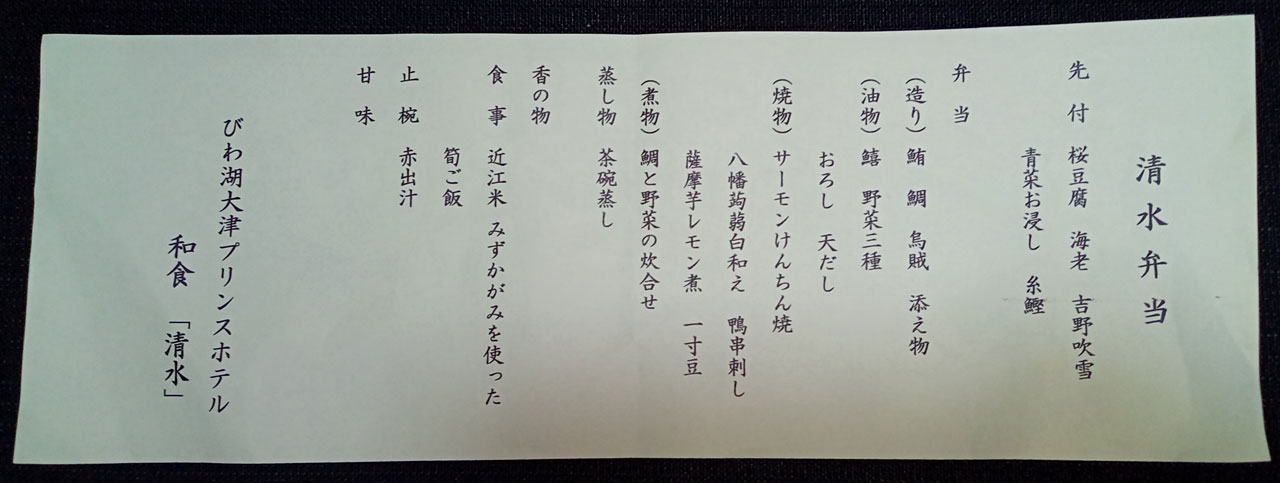 清水弁当
先付 桜豆腐 海老 吉野吹雪
青菜お浸し 糸鰹
弁当
(造り) 鮪 鯛 烏賊 添え物
(油物) 鱚 野菜三種
おろし 天だし
(焼物) サーモンけんちん焼
八幡蒟蒻白和え 鴨串刺し
薩摩芋レモン煮 一寸豆
(煮物) 鯛と野菜の炊合せ
蒸し物 茶碗蒸し
香の物
食事 近江米 みずかがみを使った
筍ご飯
止椀 赤出汁
甘味
びわ湖大津プリンスホテル
和食 「清水」